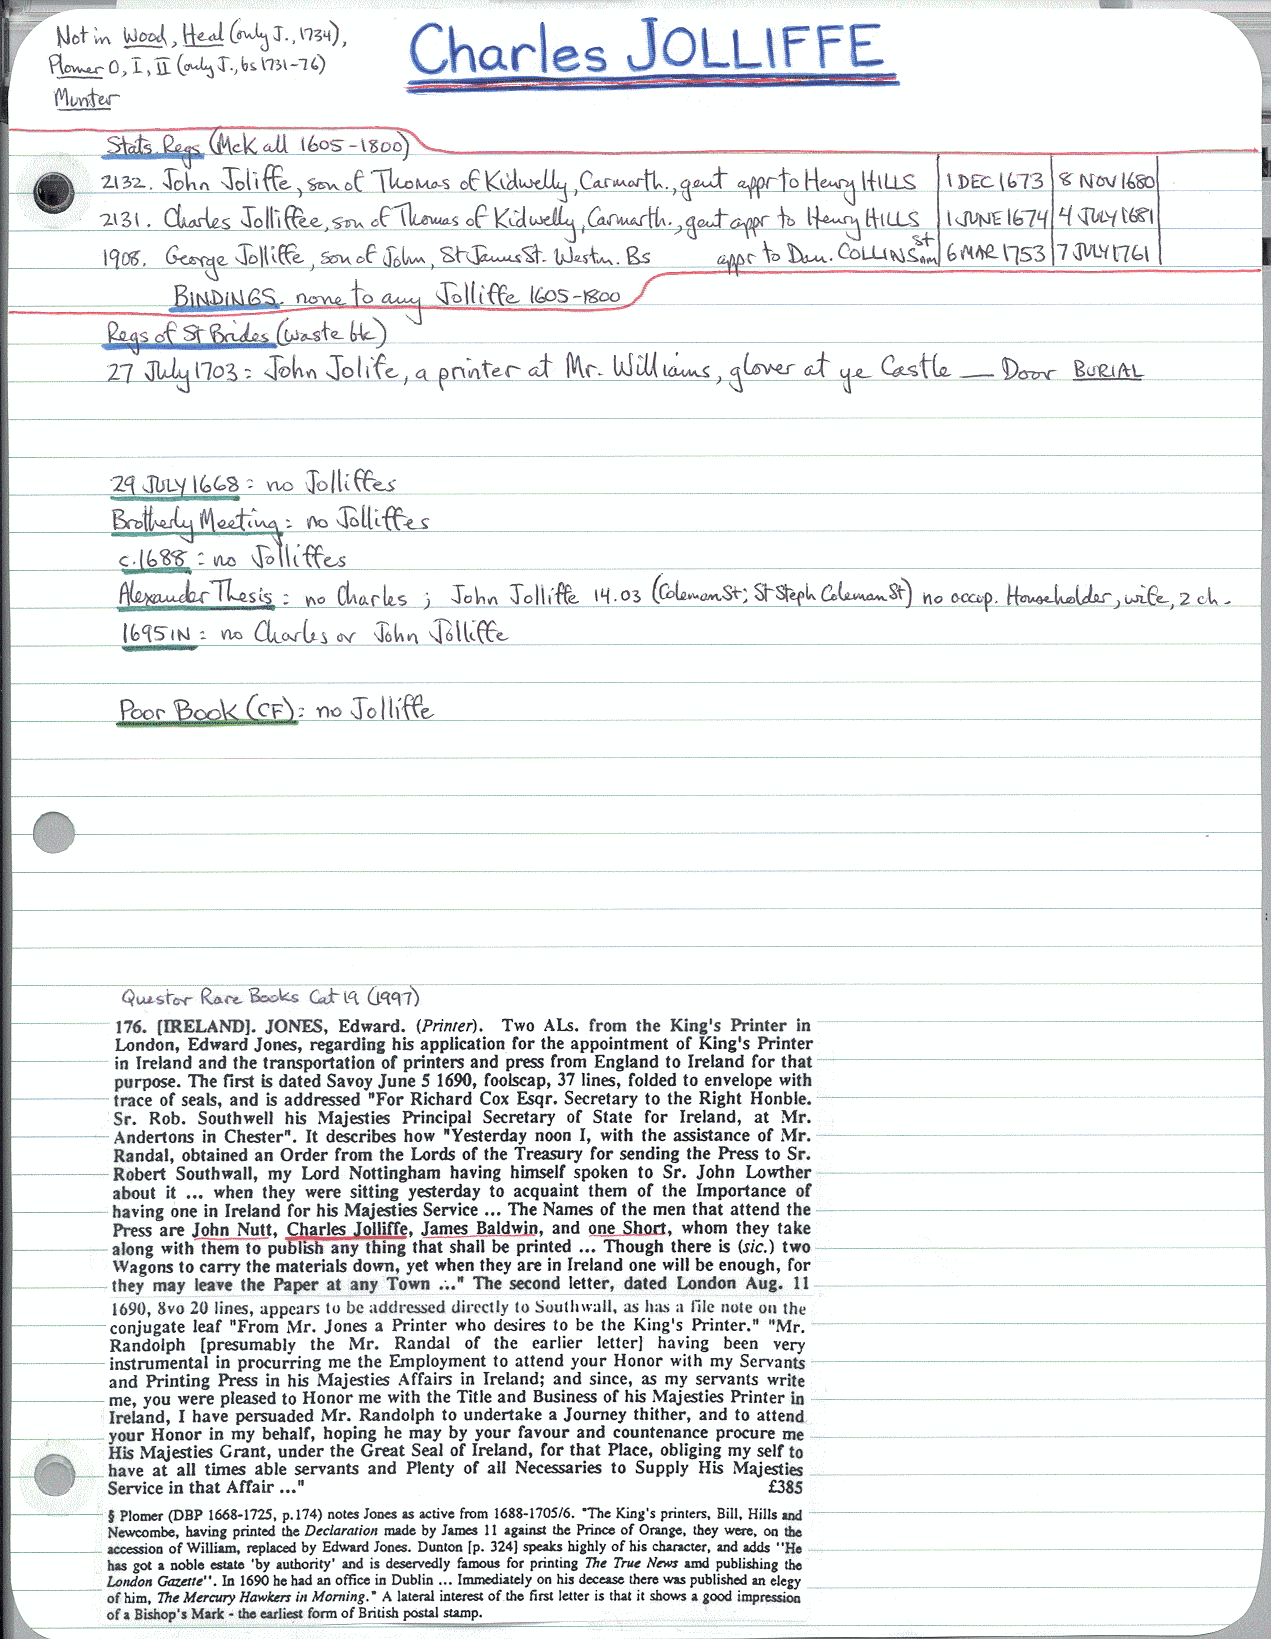 Not in Wood, Heal (only J., 1734),
Plomer O, I, II (only J., bs 1731-76)
Munter
Charles JOLLIFFE
Stats. Regs (McK all 1605-1800)
2132. John Joliffe, son of Thomas of Kidwelly, Carmarth., gent appr to Henry HILLS 1 DEC 1673 8 NOV 1680
2131. Charles Jolliffee, son of Thomas of Kidwelly, Carmarth., gent appr to Henry HILLS 1 JUNE 1674 4 JULY 1681
1908. George Jolliffe, son of John, St James St. Westm. Bs appr to Dan. COLLINS 6 MAR 1753 7 JULY 1761
BINDINGS. none to any Jolliffe 1605-1800
Regs of St Brides (waste bk)
27 July 1703: John Jolife, a printer at Mr. Williams, glover at ye Castle — Door BURIAL
29 JULY 1668: no Jolliffes
Brotherly Meeting: no Jolliffes
c.1688: no Jolliffes
Alexander Thesis: no Charles; John Jolliffe 14.03 (Coleman St; St Steph Coleman St) no occup. Householder, wife, 2 ch.
1695 IN: no Charles or John Jolliffe
Poor Book (CF): no Jolliffe
Questor Rare Books Cat 19 (1997)
176. [IRELAND]. JONES, Edward. (Printer). Two ALs. from the King's Printer in
London, Edward Jones, regarding his application for the appointment of King's Printer
in Ireland and the transportation of printers and press from England to Ireland for that
purpose. The first is dated Savoy June 5 1690, foolscap, 37 lines, folded to envelope with
trace of seals, and is addressed "For Richard Cox Esqr. Secretary to the Right Honble.
Sr. Rob. Southwell his Majesties Principal Secretary of State for Ireland, at Mr.
Andertons in Chester". It describes how "Yesterday noon I, with the assistance of Mr.
Randal, obtained an Order from the Lords of the Treasury for sending the Press to Sr.
Robert Southwall, my Lord Nottingham having himself spoken to Sr. John Lowther
about it ... when they were sitting yesterday to acquaint them of the Importance of
having one in Ireland for his Majesties Service ... The Names of the men that attend the
Press are John Nutt, Charles Jolliffe, James Baldwin, and one Short, whom they take
along with them to publish any thing that shall be printed ... Though there is (sic.) two
Wagons to carry the materials down, yet when they are in Ireland one will be enough, for
they may leave the Paper at any Town ..." The second letter, dated London Aug. 11
1690, 8vo 20 lines, appears to be addressed directly to Southwall, as has a file note on the
conjugate leaf "From Mr. Jones a Printer who desires to be the King's Printer." "Mr.
Randolph [presumably the Mr. Randal of the earlier letter] having been very
instrumental in procurring me the Employment to attend your Honor with my Servants
and Printing Press in his Majesties Affairs in Ireland; and since, as my servants write
me, you were pleased to Honor me with the Title and Business of his Majesties Printer in
Ireland, I have persuaded Mr. Randolph to undertake a Journey thither, and to attend
your Honor in my behalf, hoping he may by your favour and countenance procure me
His Majesties Grant, under the Great Seal of Ireland, for that Place, obliging my self to
have at all times able servants and Plenty of all Necessaries to Supply His Majesties
Service in that Affair ..." £385
§ Plomer (DBP 1668-1725, p.174) notes Jones as active from 1688-1705/6. "The King's printers, Bill, Hills and
Newcombe, having printed the Declaration made by James 11 against the Prince of Orange, they were, on the
accession of William, replaced by Edward Jones. Dunton [p. 324] speaks highly of his character, and adds "He
has got a noble estate 'by authority' and is deservedly famous for printing The True News amd publishing the
London Gazette". In 1690 he had an office in Dublin ... Immediately on his decease there was published an elegy
of him, The Mercury Hawkers in Morning." A lateral interest of the first letter is that it shows a good impression
of a Bishop's Mark - the earliest form of British postal stamp.